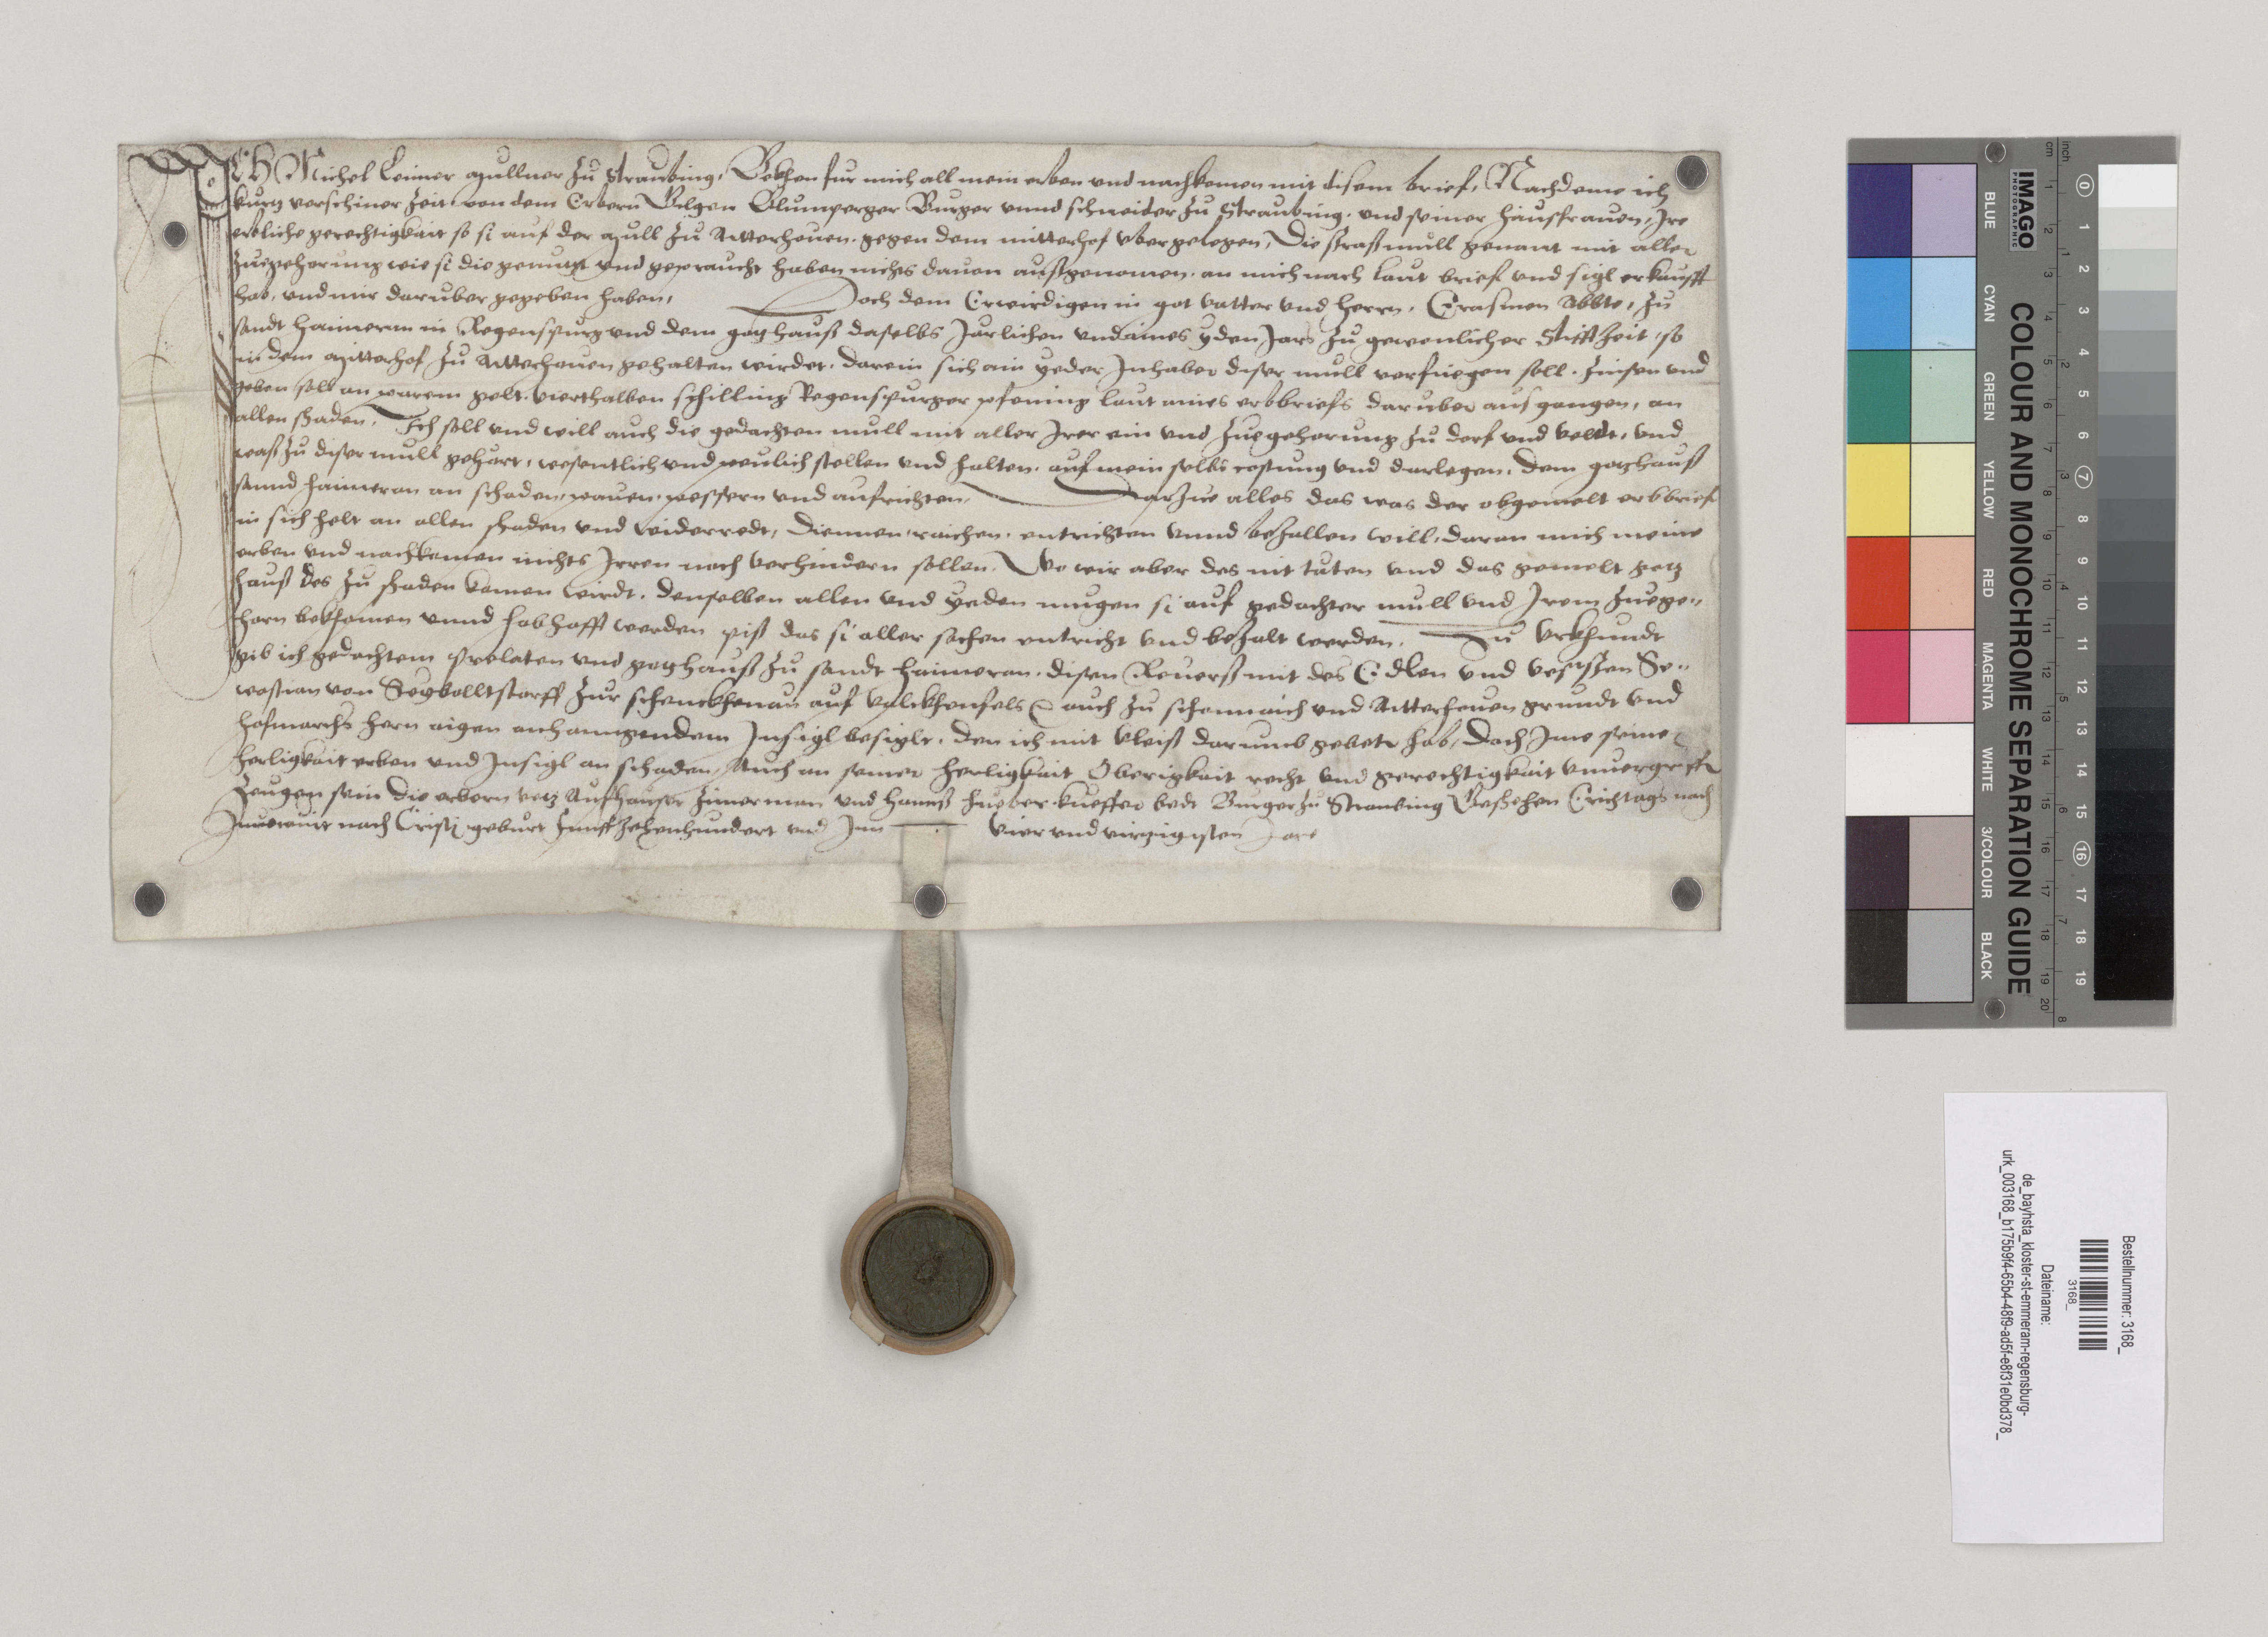 ICH Michel Leimer mullner zu Straubing, Bekhen fur mich all mein erben und nachkomen mit disem brief, Nachdeme ich
kurtz verschiner zeit von dem Erbern Gilgen Blumperger Burger unnd schneider zu Straubing, und seiner hausfrauen, Jre
erbliche gerechtigkait so si auf der mull zu Atterhouen, gegen dem mitterhof uber gelegen, Die straßmull genant mit aller
zuegehorung wie si die genutzt und gepraucht haben nichts dauon außgenomen, an mich nach laut brief und sigl erkaufft
hab, und mir daruber gegeben haben, Doch dem Erwirdigen in got vatter und herrn, Erasmen Abbte, zu
sandt Haimeran in Regenspurg und dem gotzhauß daselbs Jarlichen und aines yden Jars zu gewonlicher Stifft zeit, so
in dem mitterhof zu Atterhouen gehalten wirdet, darein sich ain yeder Jnhaber diser mull verfuegen soll, zinsen und
geben soll an parem gelt, vierthalben schilling Regenspurger pfening laut aines erbbriefs daruber ausgangen, an
allen schaden, Ich soll und will auch die gedachten mull mit aller Jrer ein und zuegehorung zu dorf und veldt, und
waß zu diser mull gehort, wesentlich und peulich stellen und halten, auf mein selbs costung und darlegen, dem gotzhauß
sannd Haimeran an schaden, pauen, pessern und aufrichten, Darzue alles das was der obgemelt erbbrief
in sich helt an allen schaden und widerredt, diennen, raichen, entrichten unnd bezallen will, daran mich meine
erben und nachkomen nichts Jrren noch verhindern sollen, Wo wir aber des nit täten und das gemelt gotz
hauß des zu schaden komen wirdt, denselben allen und yeden mugen si auf gedachter mull und Jrem zuege„
horn bekhomen unnd habhafft werden piß das si aller sachen entricht und bezalt werden, Zu Urkhundt
gib ich gedachtem prelaten und gotzhauß zu sandt Haimeran, disen Reuerß mit des Edlen und vesten Se„
wastian von Seyboltstorff zur schenckhenau auf valckhenfels auch zu schennaich und Atterhouen grundt und
hofmarchs hern aigen anhanngendem Jnsigl besiglt, den ich mit vleiß darumb gebetn hab, Doch Jme seine
herligkait erben und Jnsigl an schaden, Auch an seiner herligkait Oberigkait recht und gerechtigkait unuergriffn
Zeugen sein die erbern vetz Aufhauser Zimerman und Hanns Hueber kueffer bede Burger zu Straubing Beschehen Erichtags nach
Jnuocauit nach Cristi geburt Funffzehenhundert und Jnn vier und virzigisten Jare
IMAGO
PHOTOGRAPHIC
COLOUR AND MONOCHROME SEPARATION GUIDE
BLUE
CYAN
GREEN
YELLOW
RED
MAGENTA
WHITE
3/COLOUR
BLACK
cm 1 2 3 4 5 6 7 8 9 10 11 12 13 14 15 16 17 18 19 20
inch 1 2 3 4 5 6 7 8
0 1 2 3 4 5 6 7 8 9 10 11 12 13 14 15 16 17 18 19
Bestellnummer: 3168_
3168_
Dateiname:
de_bayhsta_kloster-st-emmeram-regensburg-
urk_003168_b175b9f4-65b4-48f9-ad5f-e8f31e0bd378_